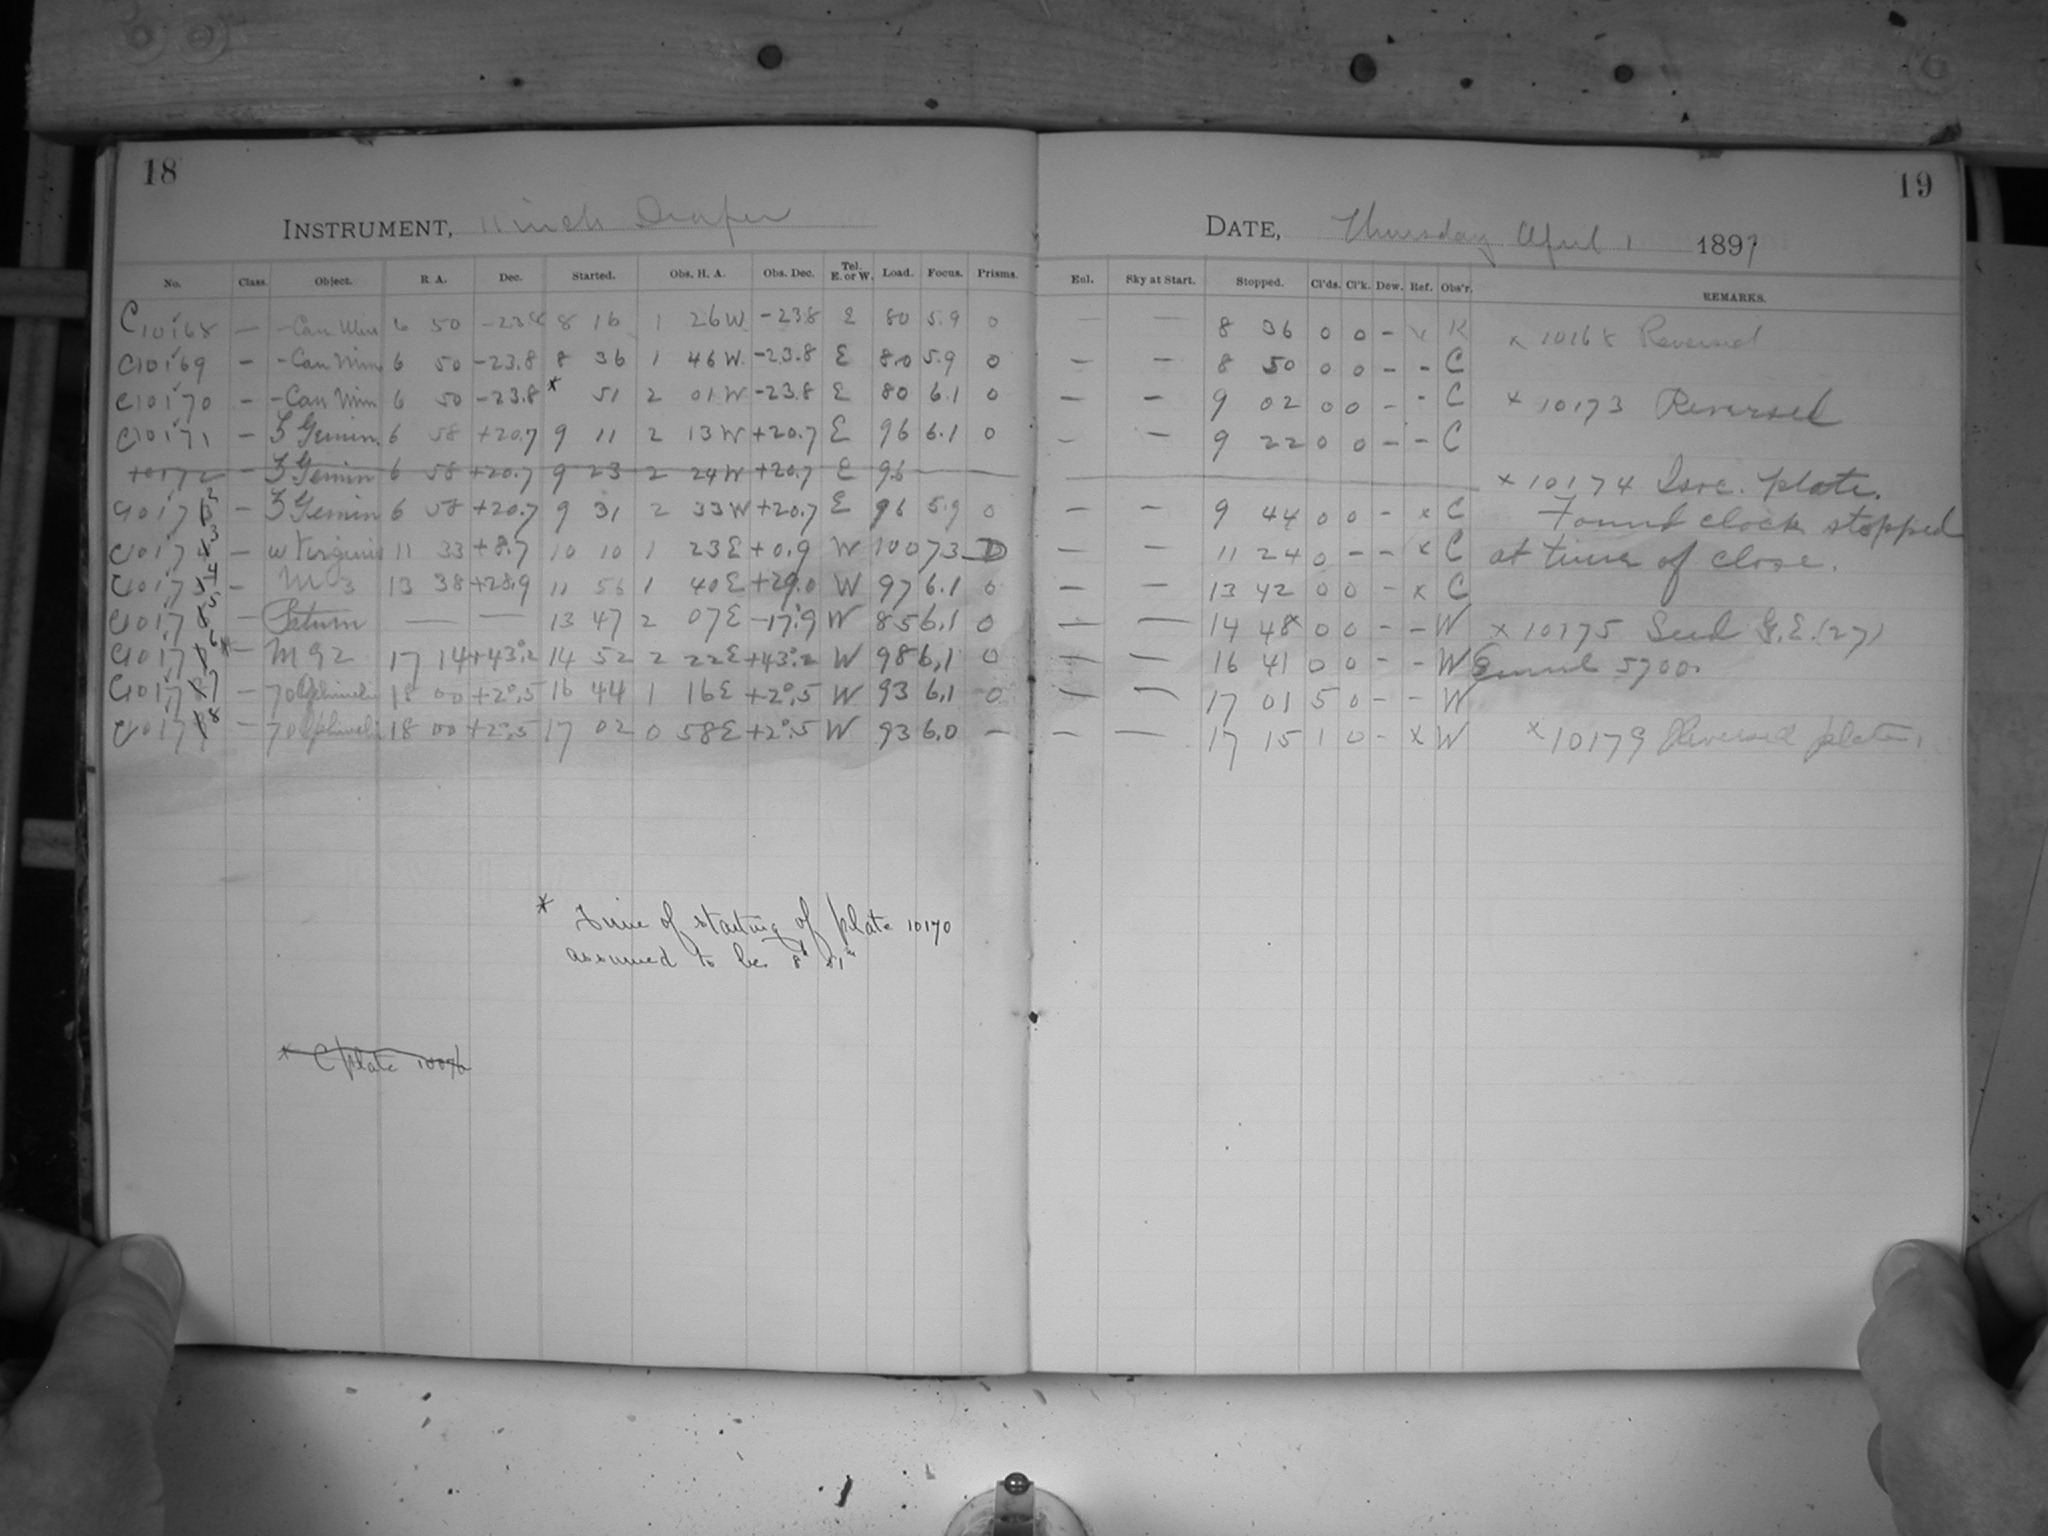 18
INSTRUMENT, 11 inch Draper
No. Class. Object. R A. Dec. Started. Obs. H. A. Obs. Dec. Tel. E. or W. Load. Focus. Prisms.
C10168 — - Can Min 6 50 -23.8 8 16 1 26 W -23.8 E 80 5.9 0
C10169 — - Can Min 6 50 -23.8 8 36 1 46 W -23.8 E 80 5.9 0
C10170 — - Can Min 6 50 -23.8 * 51 2 01 W -23.8 E 80 6.1 0
C10171 — ζ Gemin 6 58 +20.7 9 11 2 13 W +20.7 E 96 6.1 0
10172 — ζ Gemin 6 58 +20.7 9 23 2 24 W +20.7 E 96
C10172 — ζ Gemin 6 58 +20.7 9 31 2 33 W +20.7 E 96 5.9 0
C10173 — ω Virginis 11 33 +8.7 10 10 1 23 E +0.9 W 100 7.3 D
C10174 — M 3 13 38 +28.9 11 56 1 40 E +29.0 W 97 6.1 0
C10175 — Saturn — — 13 47 2 07 E -17°.9 W 85 6.1 0
C10176 * — M 92 17 14 +43°.2 14 52 2 22 E +43°.2 W 98 6.1 0
C10177 — 70 Ophiuchi 18 00 +2°.5 16 44 1 16 E +2°.5 W 93 6.1 0
C10178 — 70 Ophiuchi 18 00 +2°.5 17 02 0 58 E +2°.5 W 93 6.0 —
* Time of starting of plate 10170
assumed to be 8h 51m
* C plate
19
DATE, Thursday April 1 1897
Eul. Sky at Start. Stopped. Cl'ds. Cl'k. Dew. Ref. Obs'r. REMARKS.
— — 8 36 0 0 - x K x 10168 Reversed
— — 8 50 0 0 - - C
— — 9 02 0 0 - - C x 10173 Reversed
— — 9 22 0 0 - - C
x 10174 Isoc. plate.
— — 9 44 0 0 - x C Found clock stopped
— — 11 24 0 - - x C at time of close.
— — 13 42 0 0 - x C
— — 14 48 0 0 - - W x 10175 Seed G.E. (27)
— — 16 41 0 0 - - W 5700.
— — 17 01 5 0 - - W
— — 17 15 1 0 - x W x 10179 Reversed plate,